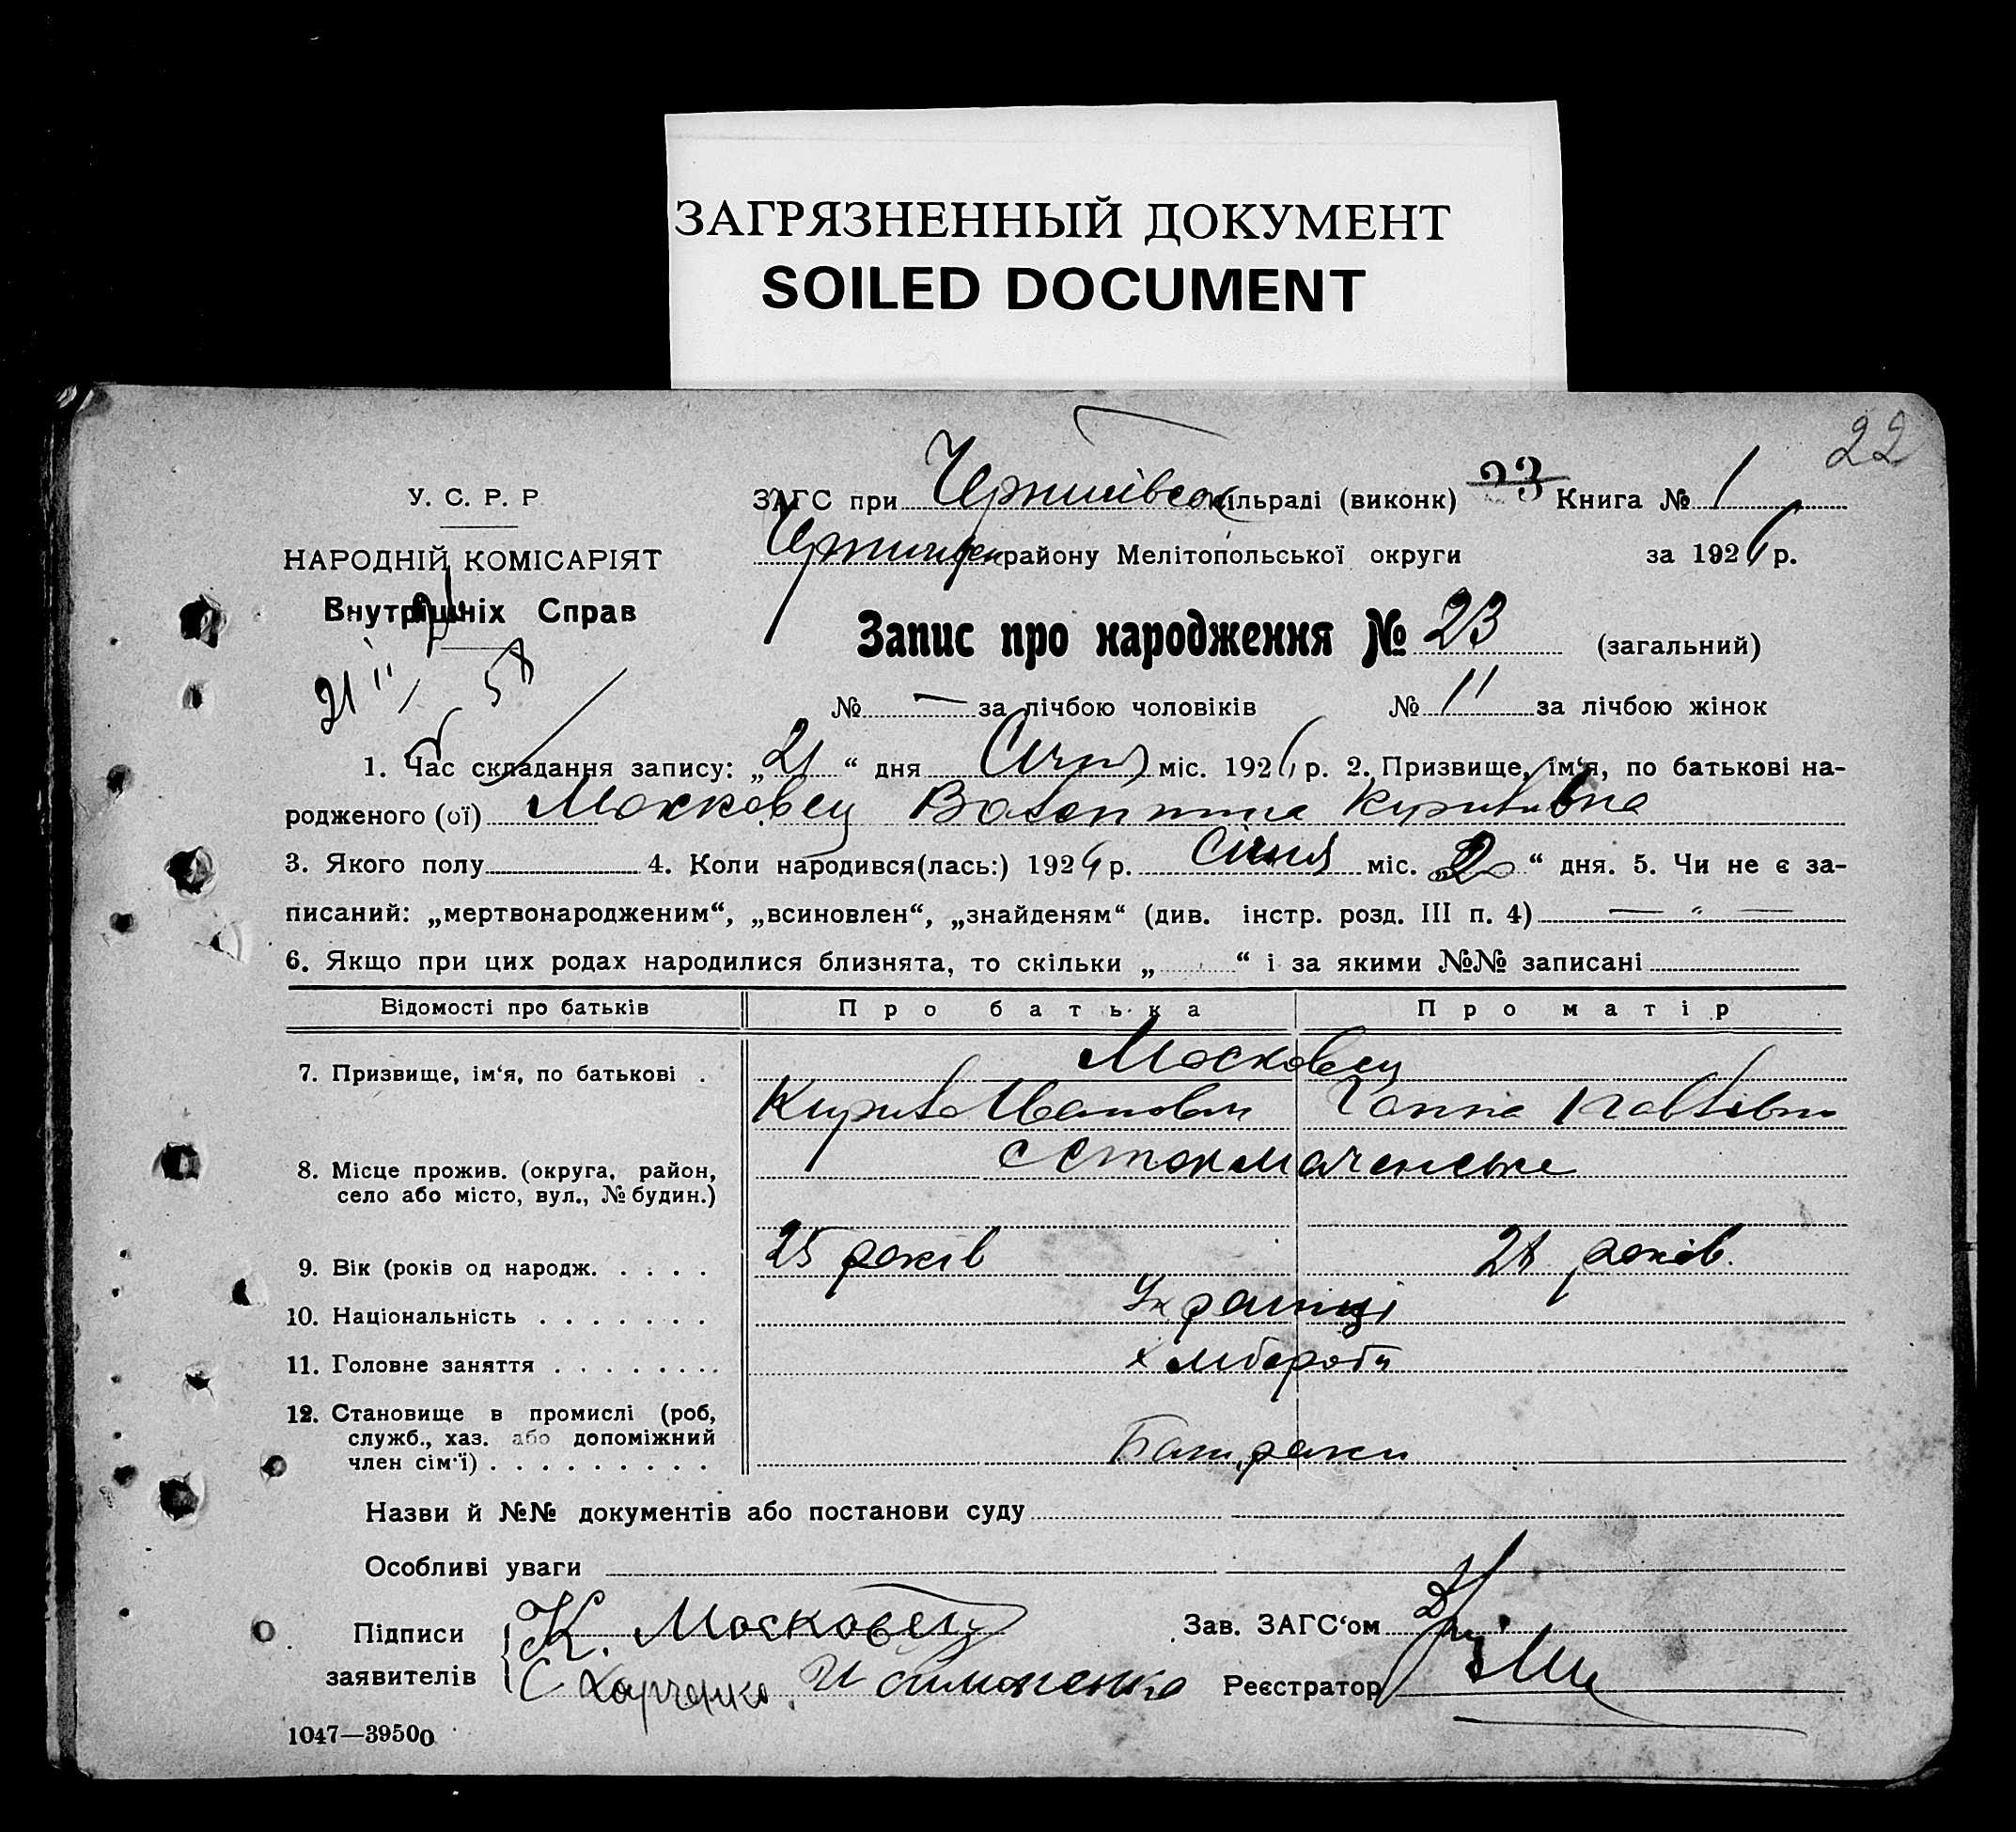 ЗАГРЯЗНЕННЫЙ ДОКУМЕНТ
SOILED DOCUMENT
22
У. С. Р. Р
ЗАГС при Чернигівськ сільраді (виконк) 23 Книга № 1
НАРОДНІЙ КОМІСАРІЯТ
району Мелітопольської округи за 1926 р.
Внутрішніх Справ
Запис про народження № 23 (загальний)
№ — за лічбою чоловіків № 11 за лічбою жінок
1. Час складання запису: „21“ дня Січня міс. 1926 р. 2. Призвище, ім‘я, по батькові на-
родженого (ої) Московец Валентина Кирилівна
3. Якого полу 4. Коли народився(лась:) 1926 р. Січня міс. „20“ дня. 5. Чи не є за-
писаний: „мертвонародженим“, „всиновлен“, „знайденям“ (див. інстр. розд. III п. 4) — „ —
6. Якщо при цих родах народилися близнята, то скільки „ “ і за якими №№ записані
Відомості про батьків Про батька Про матір
7. Призвище, ім‘я, по батькові . Московец
Кирило Иванович Ганна Павлівна
8. Місце прожив. (округа, район,
село або місто, вул., № будин.)
9. Вік (років од народж. . . . . 25 років 21 років.
10. Національність . . . . . . . Українці
11. Головне заняття . . . . . . . . хлібороби
12. Становище в промислі (роб,
служб., хаз. або допоміжний
член сім‘ї) . . . . . . . . . Батраки
Назви й №№ документів або постанови суду
Особливі уваги
Підписи К. Московец Зав. ЗАГС‘ом
заявителів С Харченко, И Симоненко Реєстратор
1047—39500